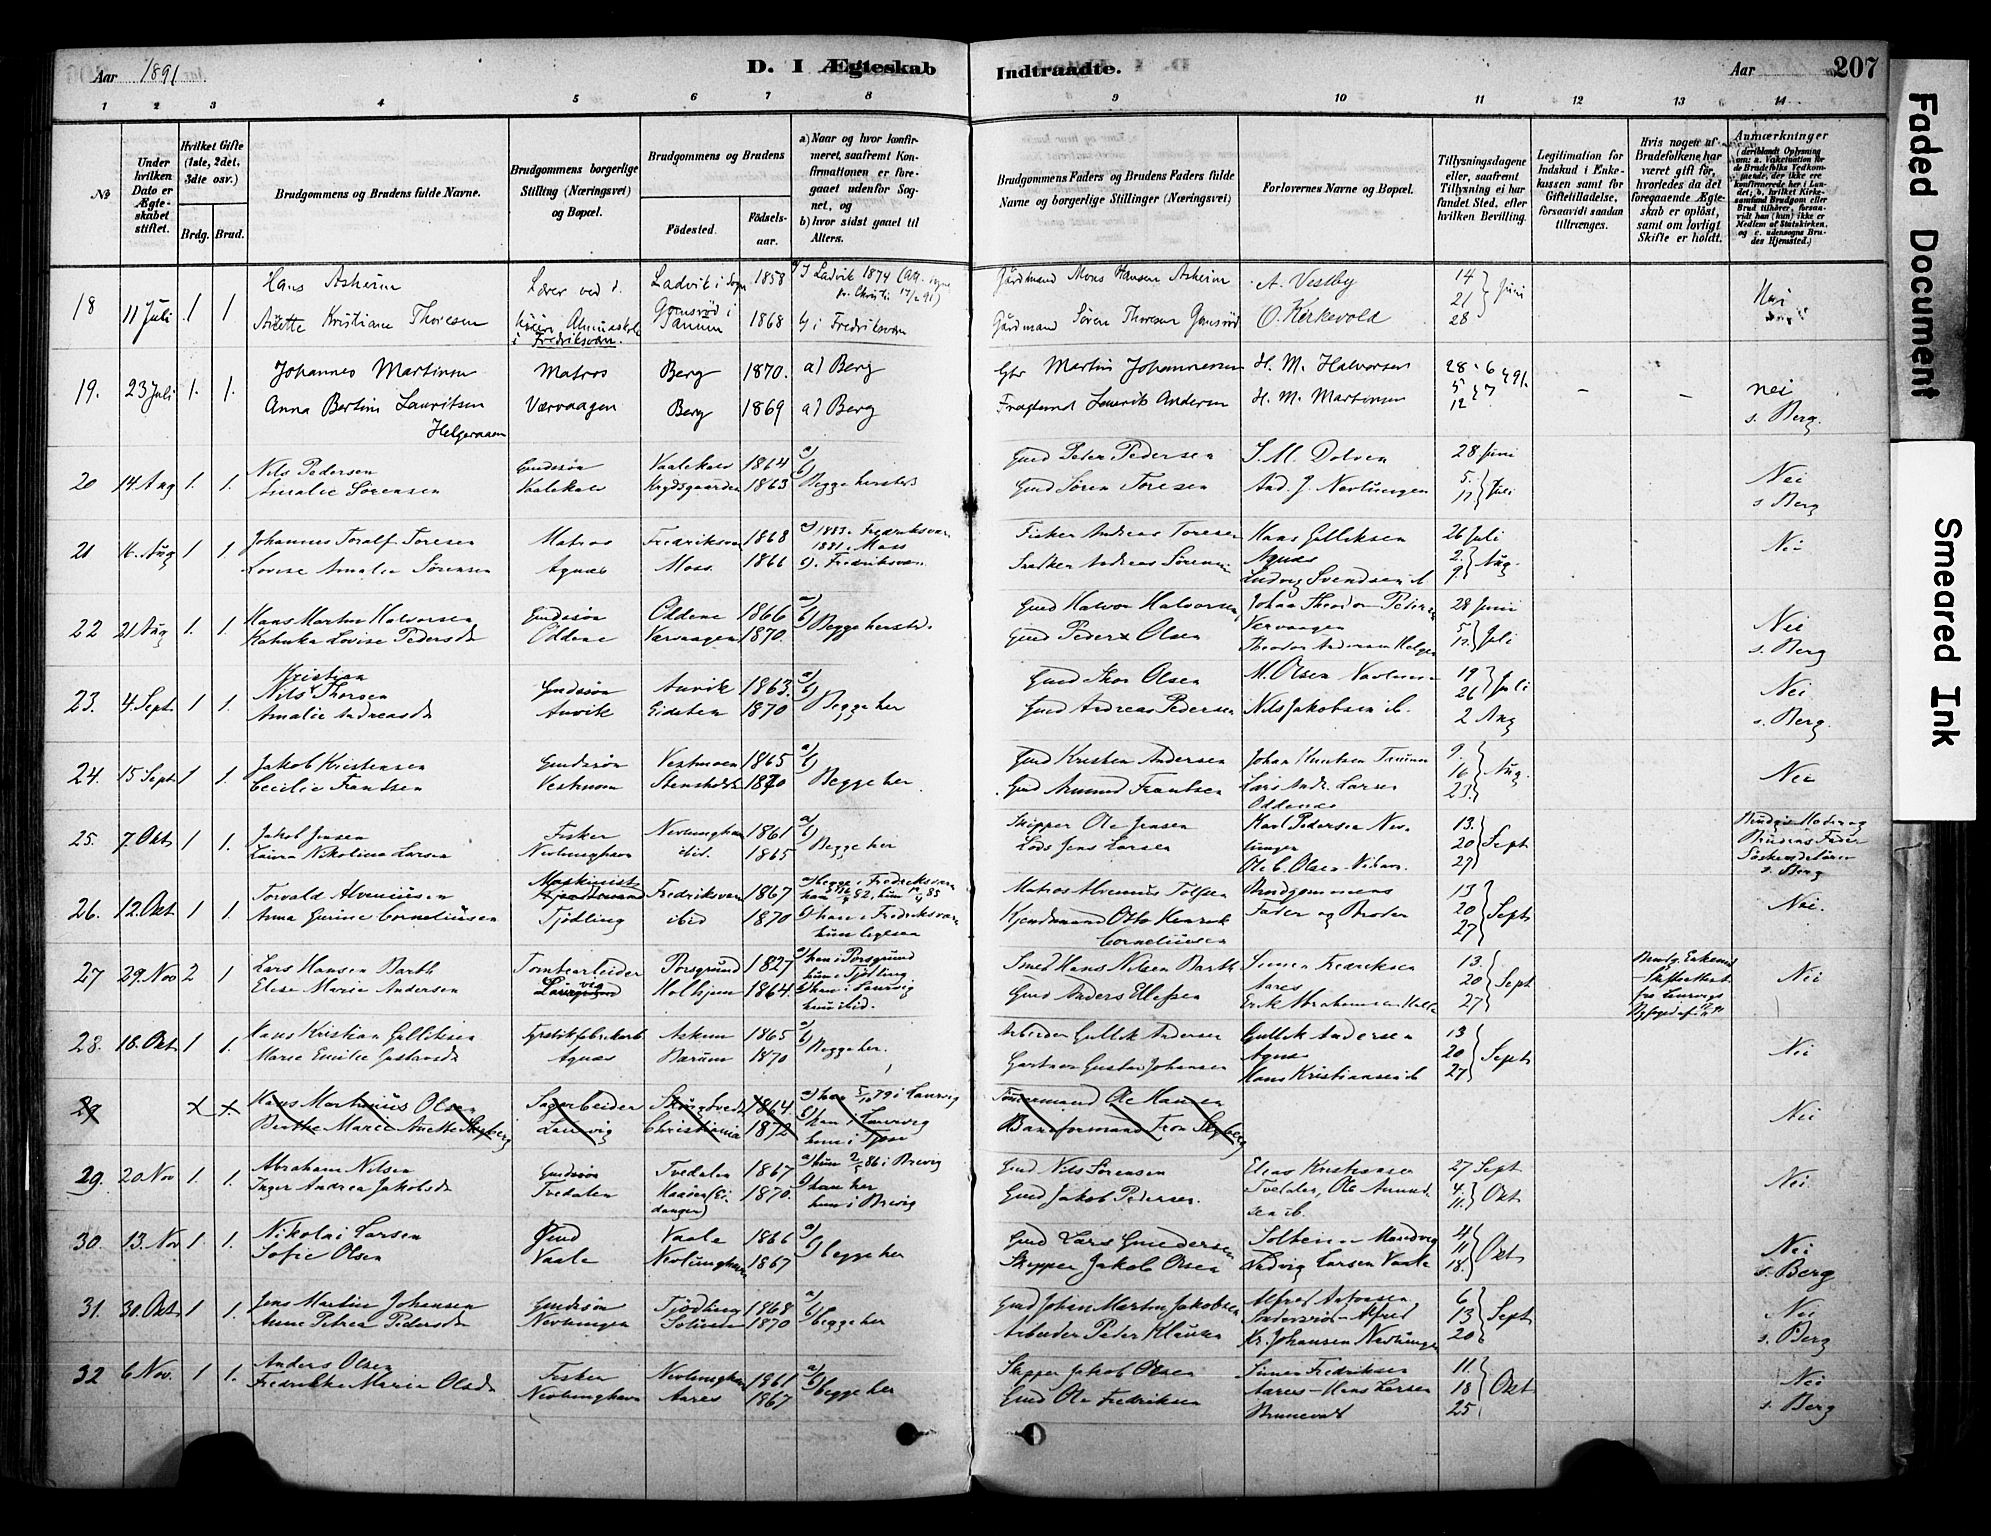 Aar 1891
D. I Ægteskab Indtraadte.
Aar 207
1 2 3 4 5 6 7 8 9 10 11 12 13 14
№
Under hvilken Dato er Ægteskabet stiftet.
Hvilket Gifte (1ste, 2det, 3die osv.)
Brdg. Brud.
Brudgommens og Brudens fulde Navne.
Brudgommens borgerlige Stilling (Næringsvei) og Bopæl.
Brudgommens og Brudens
Födested.
Födselsaar.
a) Naar og hvor konfirmeret, saafremt Konfirmationen er foregaaet udenfor Sognet, og
b) hvor sidst gaaet til Alters.
Brudgommens Faders og Brudens Faders fulde Navne og borgerlige Stillinger (Næringsvei)
Forlovernes Navne og Bopæl.
Tillysningsdagene eller, saafremt Tillysning ei har fundet Sted, efter hvilken Bevilling.
Legitimation for Indskud i Enkekassen samt for Giftetilladelse, forsaavidt saadan tiltrænges.
Hvis nogen af Brudefolkene har været gift før, hvorledes da det foregaaende Ægteskab er oplöst, samt om lovligt Skifte er holdt.
Anmærkninger
Faded Document
Smeared Ink
18 11 Juli 1 1 Hans Lærer ved d. Ladvik i Sogn 1858 Ladvik 1874 Gårdmand Mons Hansen A. Vestby 14 21 28 Juni
Kristiane Thoresen Fredriksværn. Tanum 1868 b) i Fredriksværn Gårdmand Søren Thoresen O. Kirkevold
19. 23 Juli 1. 1. Johannes Martinsen Matros Berg 1870. a) Berg Martin Johannesen H. M. Halvorsen 28-6 91. 5 12 7 - - nei
Anna Bertine Lauritsen Værvaagen Berg 1869 a) Berg Laurits Andersen H. M. Martinsen s. Berg.
Helgeroaen
20 14 Aug 1. 1. Nils Pedersen Gmdssøn Vaalekase 1864 a) b) Begge hersteds Gmd Peter Pedersen S. M. Dolven 28 Juni Nei
Amalie Sørensen Vaalekase Krydsgaarden 1863 Gmd Søren Toresen And. J. Nevlungen 5. 12 Juli s. Berg
21 16 Aug 1 1. Johannes Toralf Toresen Matros Fredriksværn 1868 a) 1883 i Fredriksværn Fisker Andreas Toresen Hans Gulliksen 26 Juli Nei
Lovise Amalie Sørensen Agnæs Moss 1866 1881 i Moss b) i Fredriksværn Andreas Sørensen Agnæs Ludvig Svendsen ib. 2. 9. Aug.
22 21 Aug 1. 1. Hans Martin Halvorsen Gmdssøn Oddene 1866 a) b) Begge hersteds Gmd Halvor Halvorsen Johan Theodor Pedersen 28 Juni Nei
Lovise Pedersdr Oddene Vervaagen 1870. Gmd Peder Olsen Vervaagen Theodor Andersen 5 12 Juli s. Berg
23. 4 Sept 1 1. Kristian
Nils Thorsen Gmdssøn Anvik 1863. a) b) Begge her Gmd Thor Olsen M. Olsen 19 26 Juli Nei
Amalie Andreasdr Anvik Eidsten 1870 Gmd Andreas Pedersen Nils Jakobsen ib. 2 Aug s. Berg.
24. 15 Sept 1 1. Jakob Kristensen Gmdssøn Vestmoen 1865 a) b) Begge her. Gmd Kristen Andersen Johan Knutsen Tanum 9. 16 23. Aug. Nei
Cecilie Frantsen Vestmoen Stensholt 1870 Gmd Amund Frantsen Lars Andr. Larsen Oddenæs
25. 7. Okt 1 1. Jakob Jensen Fisker Nevlunghavn 1861 a) b) Begge her Skipper Ole Jensen Karl Pedersen Nevlungen 13. 20 27 Sept Brudg. Moder og Brudens Fader Søskende
Laura Nikoline Larsen Nevlunghavn ibid. 1865 Lods Jens Larsen Ole C. Olsen s. Berg
26. 12. Okt 1 1. Torvald Alveniussen Maskinist Fredriksværn 1867 a) begge i Fredriksværn Matros Alvenius Tolfsen Brudgommens 13 20 27 Sept Nei.
Anna Gurine Corneliussen Tjödling ibid 1870 b) han i Fredriksværn hun ligesaa Otto Henrik Corneliussen Fader og Broder
27 29. Nov 2 1 Lars Hansen Barth Tomtearbeider Porsgrund 1827 a) han i Porsgrund hun i Tjödling Smed Hans Nilsen Barth Simen Fredriksen 13. 20 27 Sept Brudg. Enkemand Skifteattest fra Laurvigs Nei
Elise Marie Andersen Laurvig Holhjem 1864. b) han i Laurvig hun ibid. Gmd Anders Ellefsen Aares Erik Abrahamsen
28. 18. Okt 1 1. Hans Kristian Gulliksen Fyrstikfabrikarb. Askum 1865 a) b) Begge her. Arbeider Gullik Andersen Gullik Andersen 13 20 27 Sept Nei
Marie Emilie Gustavsdr Agnæs Bærum 1870 Gartner Gustav Johansen Agnæs Hans Kristiansen ib.
29 x x Hans Martinius Olsen Sagarbeider 1864. a) han 5/10 79 i Laurvig Tømmermand Ole Hansen Nei
Berthe Marie Anette Laurvig Christiania 1872 b) han i Laurvig hun i Baneformand
29. 20 Nov 1. 1. Abraham Nilsen Gmdssøn Tvedalen 1867 a) hun 86 i Brevig Gmd Nils Sørensen Elias Kristiansen 27 Sept Nei.
Inger Andrea Jakobsdr Tvedalen Eidanger) 1870. b) han her hun i Brevig Gmd Jakob Pedersen. Tvedalen, Ole Amundsen ib. 4. 11. Okt
30. 13. Nov 1. 1. Nikolai Larsen Gmd Vaale 1866 a) b) begge her Gmd Lars Gundersen Manvig 4 11 18. Okt Nei
Sofie Olsen Vaale Nevlunghavn 1867 Skipper Jakob Olsen Ludvig Larsen Vaale s. Berg
31. 30. Okt 1 1. Jens Martin Johansen Gmdssøn Tjödling 1868 a) b) begge her Gmd Johan Martin Jakobsen Alfred Antonsen 6 13 20 Sept Nei
Anne Petrea Pedersdr Nevlungen 1870 Arbeider Peder Klausen Alfred Kr. Johansen Nevlungen s. Berg
32 6 Nov. 1 1. Anders Olsen Fisker Nevlunghavn 1861 a) b) begge her Skipper Jakob Olsen Simen Fredriksen 11. 18 25 Okt Nei
Fredrikke Marie Olsdr Nevlunghavn Aares 1867 Gmd Ole Fredriksen Aares - Hans Larsen Brunevall s. Berg